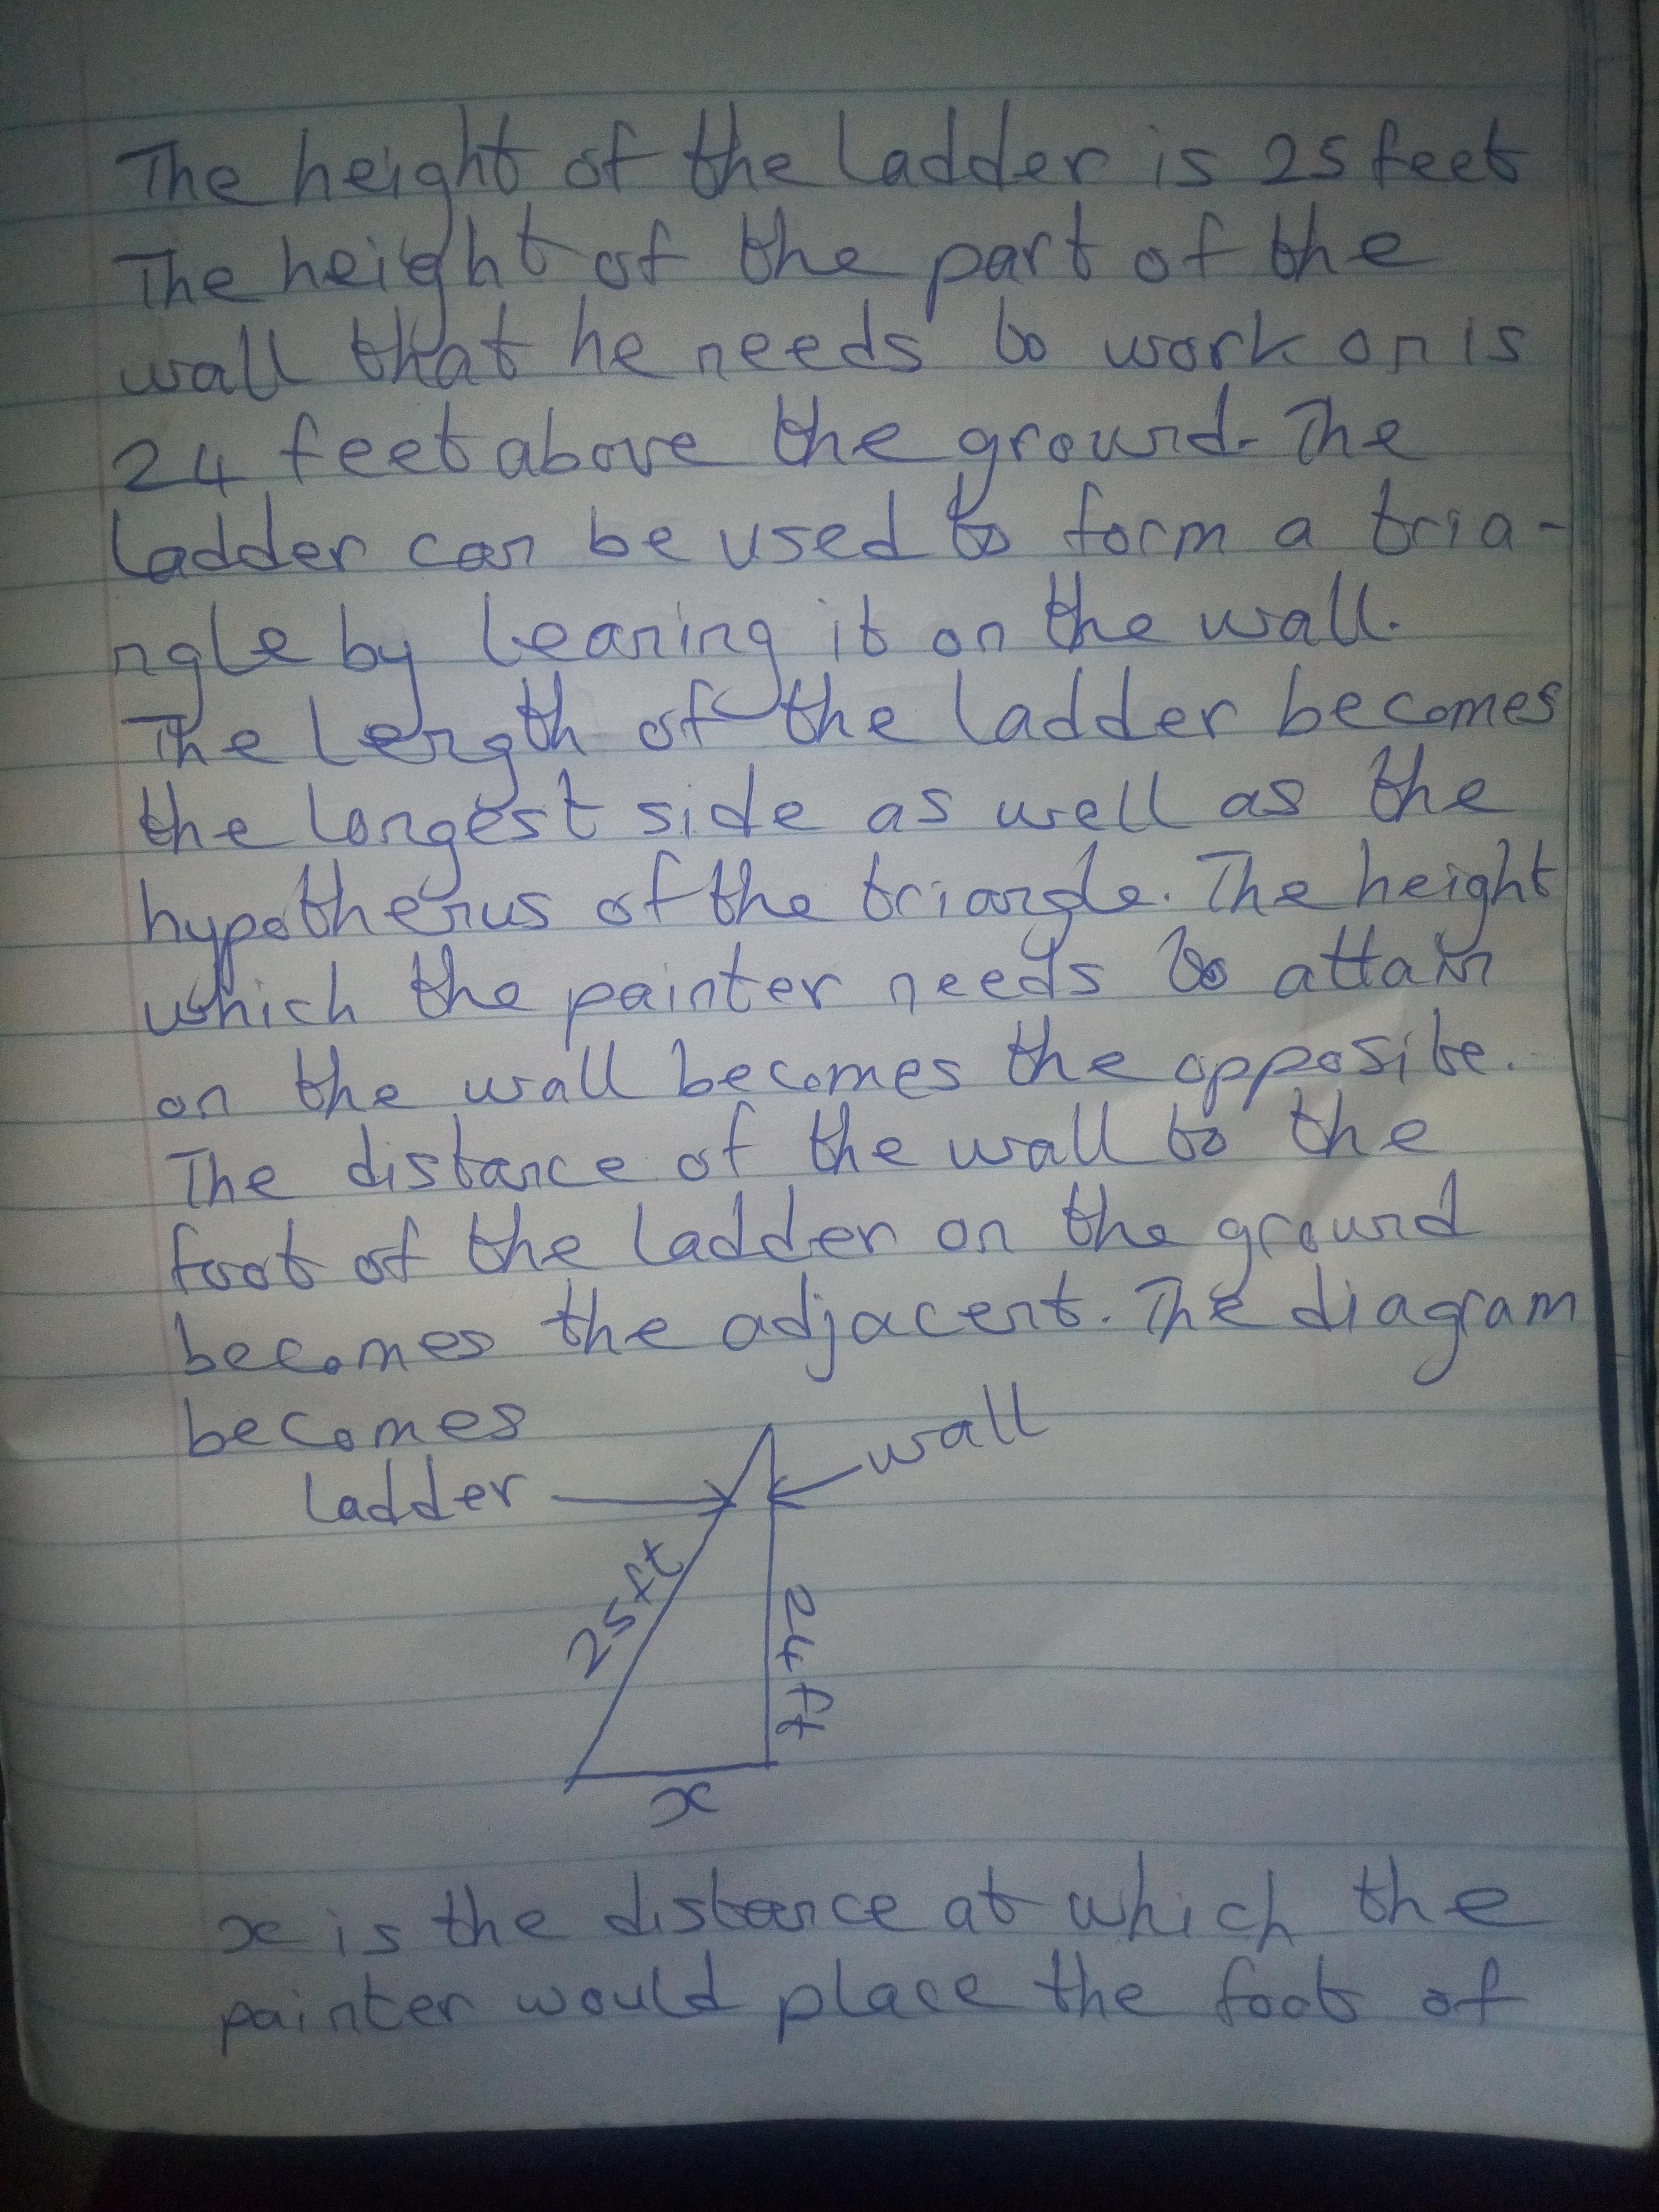 The height of the ladder is 25 feet
The height of the part of the
wall that he needs to work on is
24 feet above the ground. The
ladder can be used to form a tria-
ngle by leaning it on the wall.
The length of the ladder becomes
the longest side as well as the
hypothenus of the triangle. The height
which the painter needs to attain
on the wall becomes the opposite.
The distance of the wall to the
foot of the ladder on the ground
becomes the adjacent. The diagram
becomes
wall
ladder
25ft
24ft
x
x is the distance at which the
painter would place the foot of